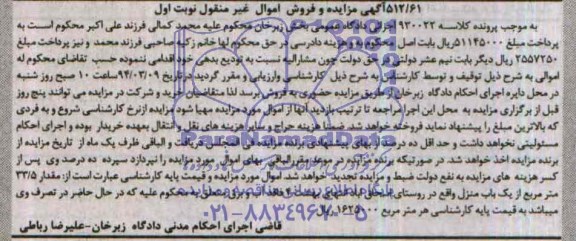 ۵۱۲/۶۱آگهی مزایده و فروش اموال غیر منقول نوبت اول
به موجب پرونده کلاسه ۹۳۰۰۲۲ اجرای دادگاه عمومی بخش زبرخان محکوم علیه محمد کمالی فرزند علی اکبر محکوم است به
پرداخت مبلغ ۵۱۱۴۵۰۰۰ریال بابت اصل محکوم به و هزینه دادرسی در حق محکوم لها خانم زکیه صاحبی فرزند محمد و نیز پرداخت مبلغ
۲۵۵۷۲۵۰ ریال دیگر بابت نیم عشر دولتی در حق دولت چون مشارالیه نسبت به تودیع بدهی خود اقدامی ننموده حسب تقاضای محکوم له
اموالی به شرح ذیل توقیف و توسط کارشناس به شرح ذیل کارشناسی وارزیابی و مقرر گردید درتاریخ ۹۴/۰۳/۰۹ساعت ۱۰ صبح روز شنبه
در محل دایره اجرای احکام دادگاه زبرخان از طریق مزایده حضوری به فروش برسد لذا متقاضیان خرید و شرکت در مزایده می توانند پنج روز
قبل از برگزاری مزایده به محل این اجرا مراجعه تا ترتیب بازدید آنها از اموال مورد مزایده مهیا شود مزایده ازنرخ کارشناسی شروع و به فردی
که بالاترین مبلغ را پیشنهاد نماید فروخته خواهد شد ضمنا هزینه حراج و سایر هزینه های نقل و انتقال بعهده خریدار بوده و اجرای احکام
مسئولیتی نخواهد داشت و حد اقل ده درصد از بهای پیشنهادی برنده مزایده فی المجلس دریافت و الباقی ظرف یک ماه از تاریخ مزایده از
برنده مزایده اخذ خواهد شد. در صورتیکه برنده مزایده در موعد مقرر الباقی بهای اموال مورد مزایده را نپردازد سپرده ده درصد وی پس از
کسر هزینه های مزایده به نفع دولت ضبط و مزایده تجدید خواهد شد. اموال مورد مزایده و قیمت پایه کارشناسی عبارت است از: مقدار ۳۳/۵
متر مربع از یک باب منزل واقع در روستای با انشعاب آب و برق متعلق به محکوم علیه که در حال حاضر در تصرف وی
میباشد به قیمت پایه کارشناسی هر متر مربع ۱۶۲۵۰۰۰ ریال
قاضی اجرای احکام مدنی دادگاه زبرخان-علیرضا رباطی
۰۲۱-۸۸۳۴۹۶۷۰-۵